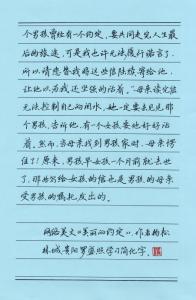 个男孩曾经有一个约定，要共同走完人生最
后的旅途，可是我也许无法履行诺言了，
所以请您替我将这些信陆续寄给他，
让他以为我还坚强的活着。"母亲读完信
无法控制自己的泪水，她一定要去见见那
个男孩，告诉他，有一个女孩要他好好活
着。然而，当母亲找到男孩家时，母亲愣
住了！原来，男孩早女孩一个月前就去世
了，那些写给女孩的信也是男孩的母亲
受男孩的嘱托发出的。
网络美文《美丽的约定》，作者杨松
林城，贵阳罗盛照学习简化字。